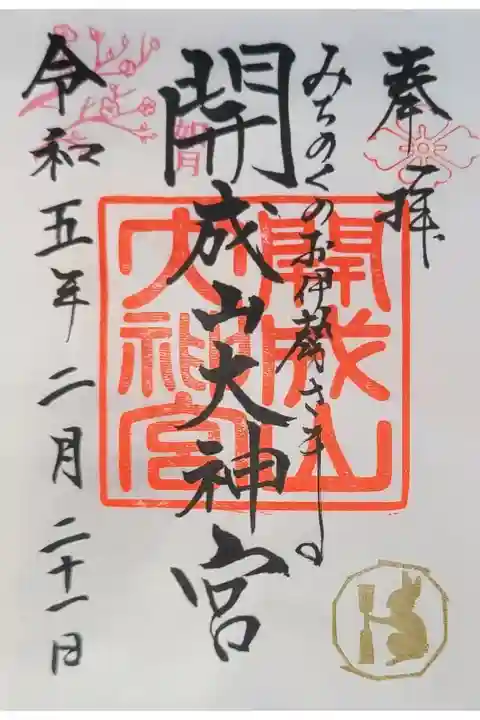 奉拝
みちのくのお伊勢さまの
開成山大神宮
如月
令和五年二月二十一日
開成山
大神宮